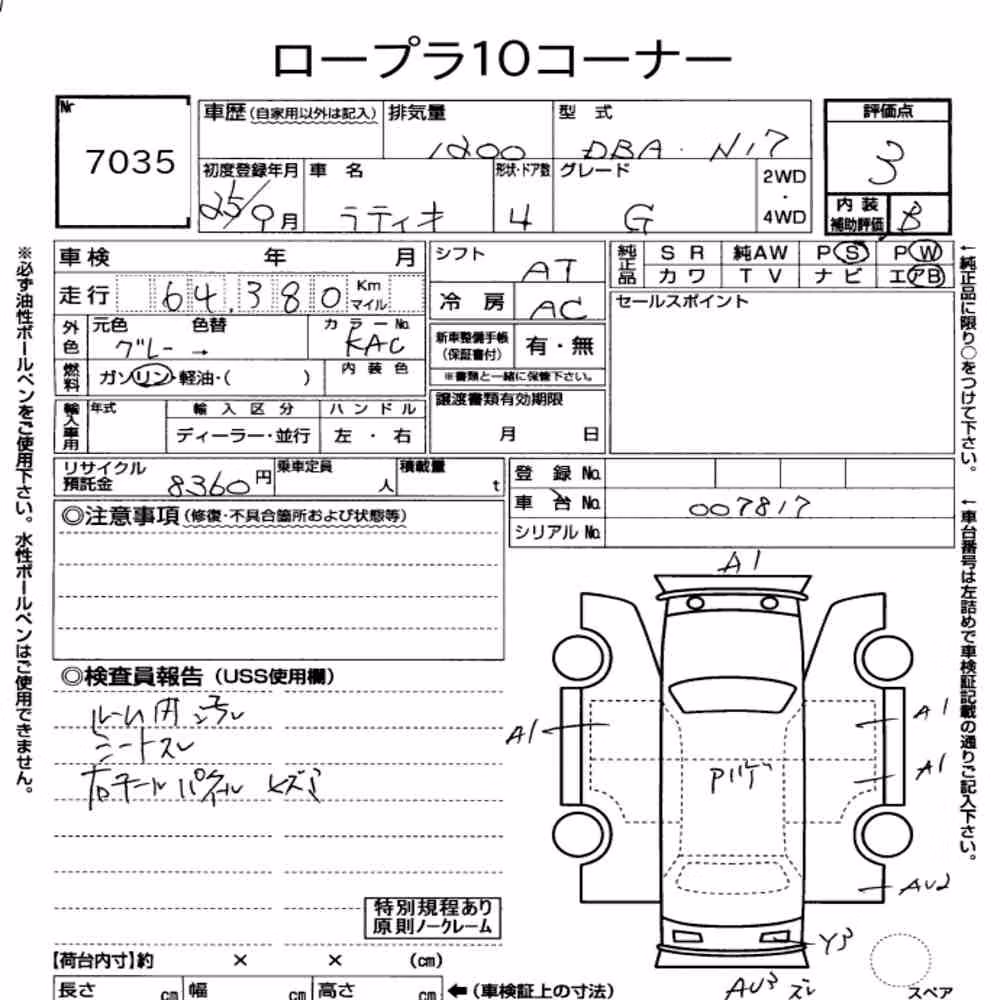 ロープラ10コーナー
Nr
7035
車歴(自家用以外は記入)
排気量
1200
型 式
DBA・N17
評価点
3
初度登録年月
25/9月
車 名
ラティオ
形状・ドア数
4
グレード
G
2WD
・
4WD
内 装
補助評価
B
車検 年 月
走行 64,380 Km
マイル
シフト
AT
冷 房
AC
純正品
SR 純AW PS PW
カワ TV ナビ エアB
外色
元色 色替
グレー →
カラーNo.
KAC
新車整備手帳
(保証書付)
有・無
※書類と一緒に保管下さい。
セールスポイント
燃料
ガソリン・軽油・( )
内装色
輸入車用
年式
輸入区分
ディーラー・並行
ハンドル
左・右
譲渡書類有効期限
月 日
リサイクル
預託金
8360円
乗車定員
人
積載量
t
登 録 No.
車 台 No.
007817
シリアル No.
◎注意事項(修復・不具合箇所および状態等)
◎検査員報告(USS使用欄)
ルーム内汚レ
シートスレ
右テールパネル ヒズミ
特別規程あり
原則ノークレーム
【荷台内寸】約 × × (cm)
長さ cm 幅 cm 高さ cm ←(車検証上の寸法)
A1
A1
A1
A1
AU2
Y3
AU3 ズレ
スペア
※必ず油性ボールペンをご使用下さい。水性ボールペンはご使用できません。
←純正品に限り○をつけて下さい。
←車台番号は左詰めで車検証記載の通りご記入下さい。